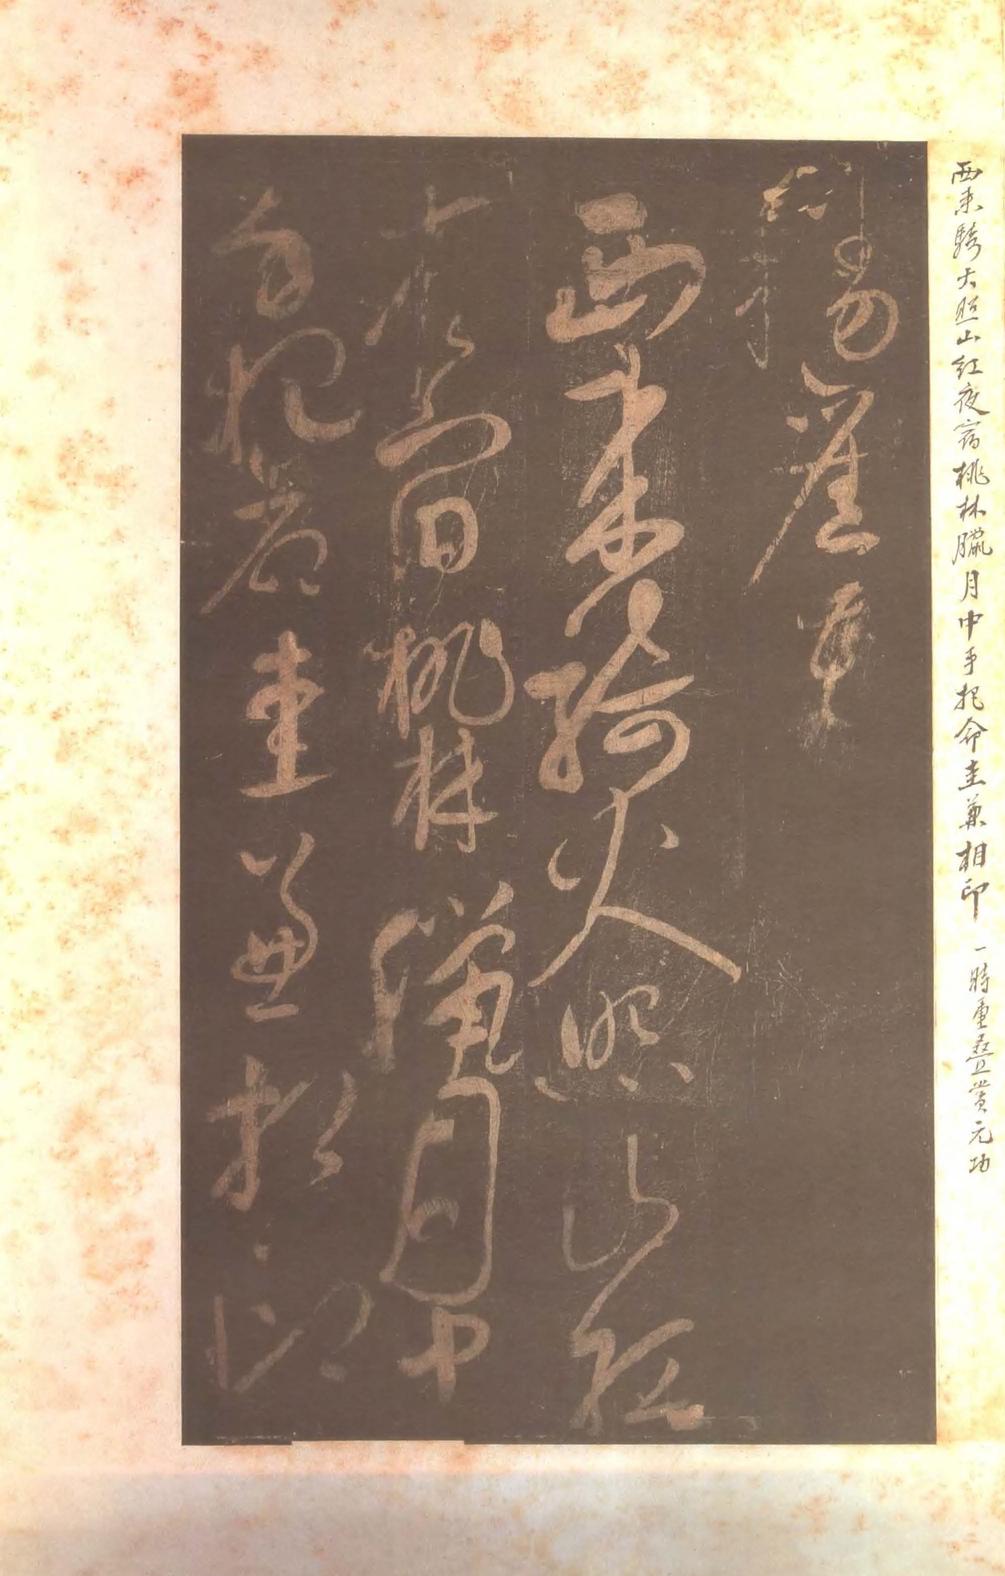 西来騎火照山红夜宿桃林臘月中手把命圭兼相印一時重疊賞元功
西来騎火照山紅
夜宿桃林臘月中
手把命圭兼相印